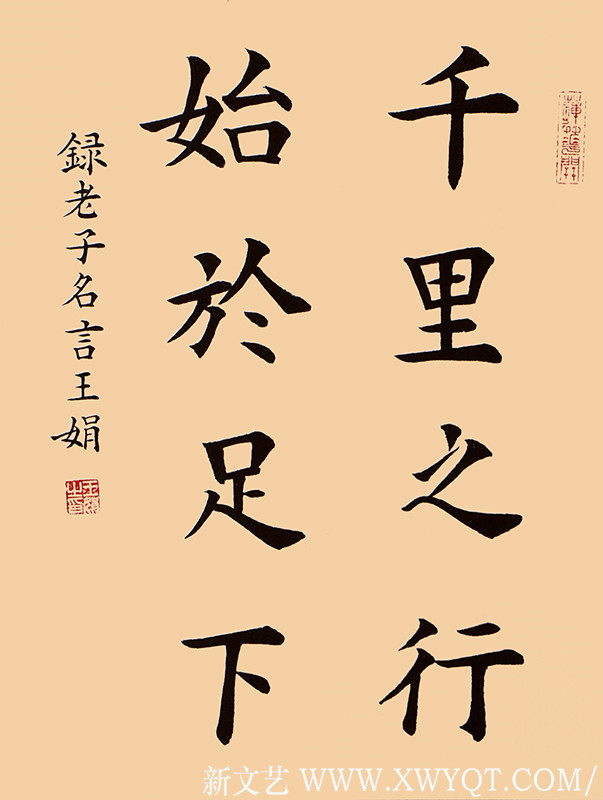 千里之行
始於足下
録老子名言王娟
新文艺 WWW.XWYQT.COM/